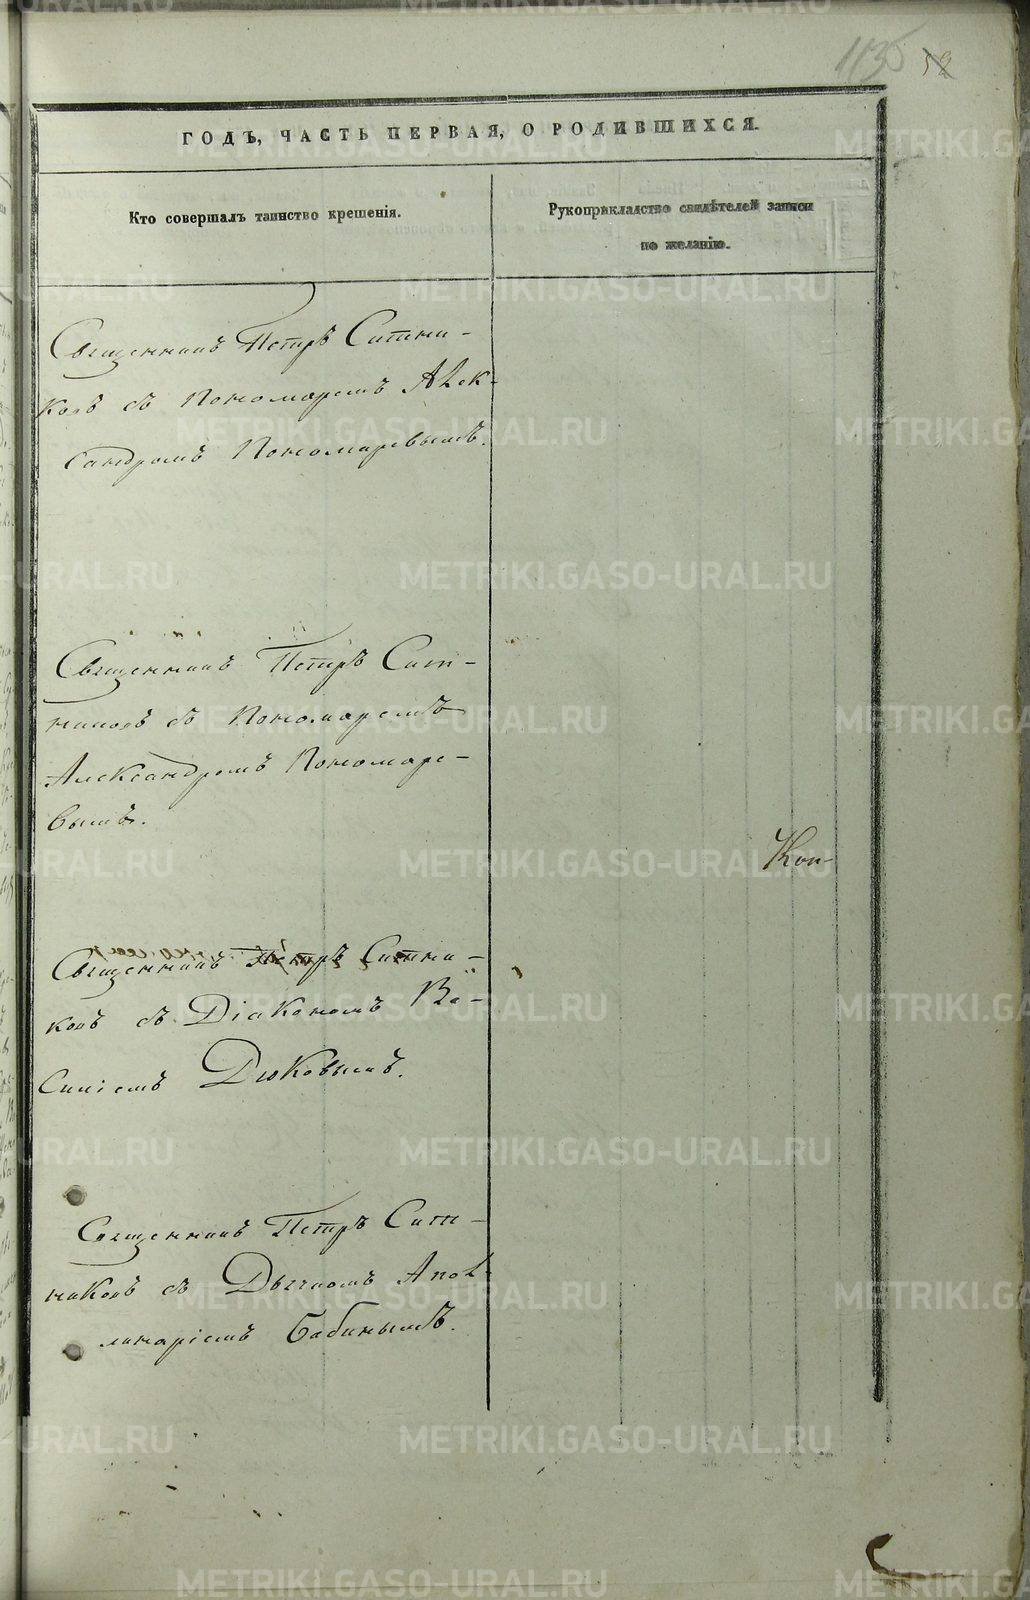 1135 52
ГОДЪ, ЧАСТЬ ПЕРВАЯ, О РОДИВШИХСЯ.
Кто совершалъ таинство крещенія.
Рукоприкладство свидѣтелей записи
по желанію.
Священникъ Петръ Ситни-
ковъ съ Пономаремъ Алек-
сандромъ Пономаревымъ.
Священникъ Петръ Сит-
никовъ съ Пономаремъ
Александромъ Пономаре-
вымъ.
Кон-
Священникъ Петръ Ситни-
ковъ съ Діакономъ Ва-
силіемъ Дюковымъ.
Священникъ Петръ Сит-
никовъ съ Дьячкомъ Апол-
линаріемъ Бабинымъ.
METRIKI.GASO-URAL.RU